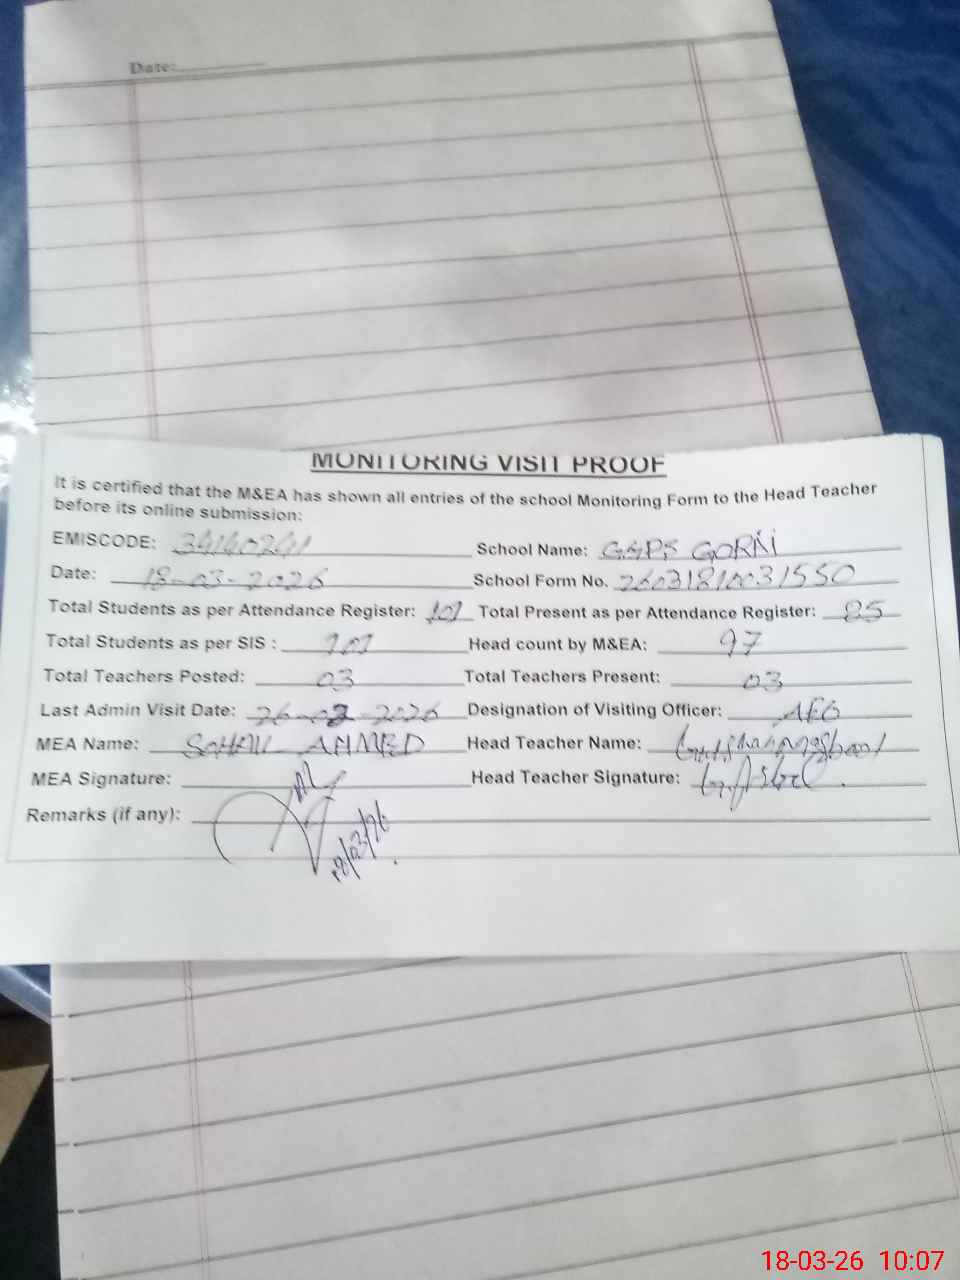 Date:
MONITORING VISIT PROOF
It is certified that the M&EA has shown all entries of the school Monitoring Form to the Head Teacher
before its online submission:
EMISCODE: 34140241 School Name: GGPS GORAI
Date: 18-03-2026 School Form No. 26031810031550
Total Students as per Attendance Register: 101 Total Present as per Attendance Register: 85
Total Students as per SIS : 101 Head count by M&EA: 97
Total Teachers Posted: 03 Total Teachers Present: 03
Last Admin Visit Date: 26-02-2026 Designation of Visiting Officer: AEO
MEA Name: SOHAIL AHMED Head Teacher Name:
MEA Signature: Head Teacher Signature:
Remarks (if any):
18/03/26
18-03-26 10:07